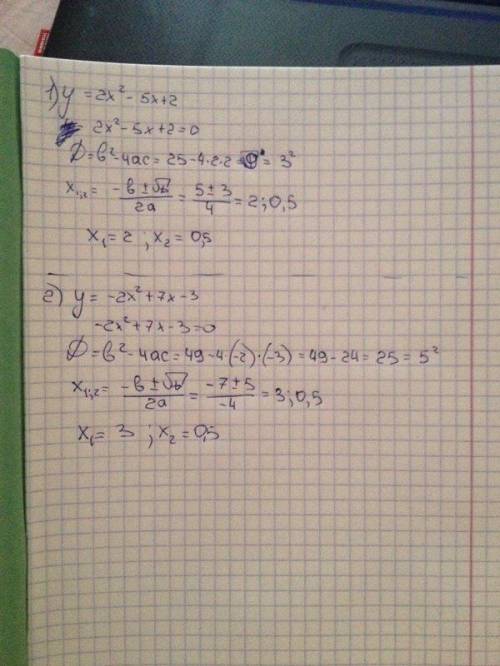 1) y = 2x² - 5x + 2
2x² - 5x + 2 = 0
D = в² - 4ac = 25 - 4·2·2 = 9 = 3²
x₁;₂ = (-в ± √D)/2a = (5 ± 3)/4 = 2; 0,5
x₁ = 2 ; x₂ = 0,5
2) y = -2x² + 7x - 3
-2x² + 7x - 3 = 0
D = в² - 4ac = 49 - 4·(-2)·(-3) = 49 - 24 = 25 = 5²
x₁;₂ = (-в ± √D)/2a = (-7 ± 5)/-4 = 3; 0,5
x₁ = 3 ; x₂ = 0,5